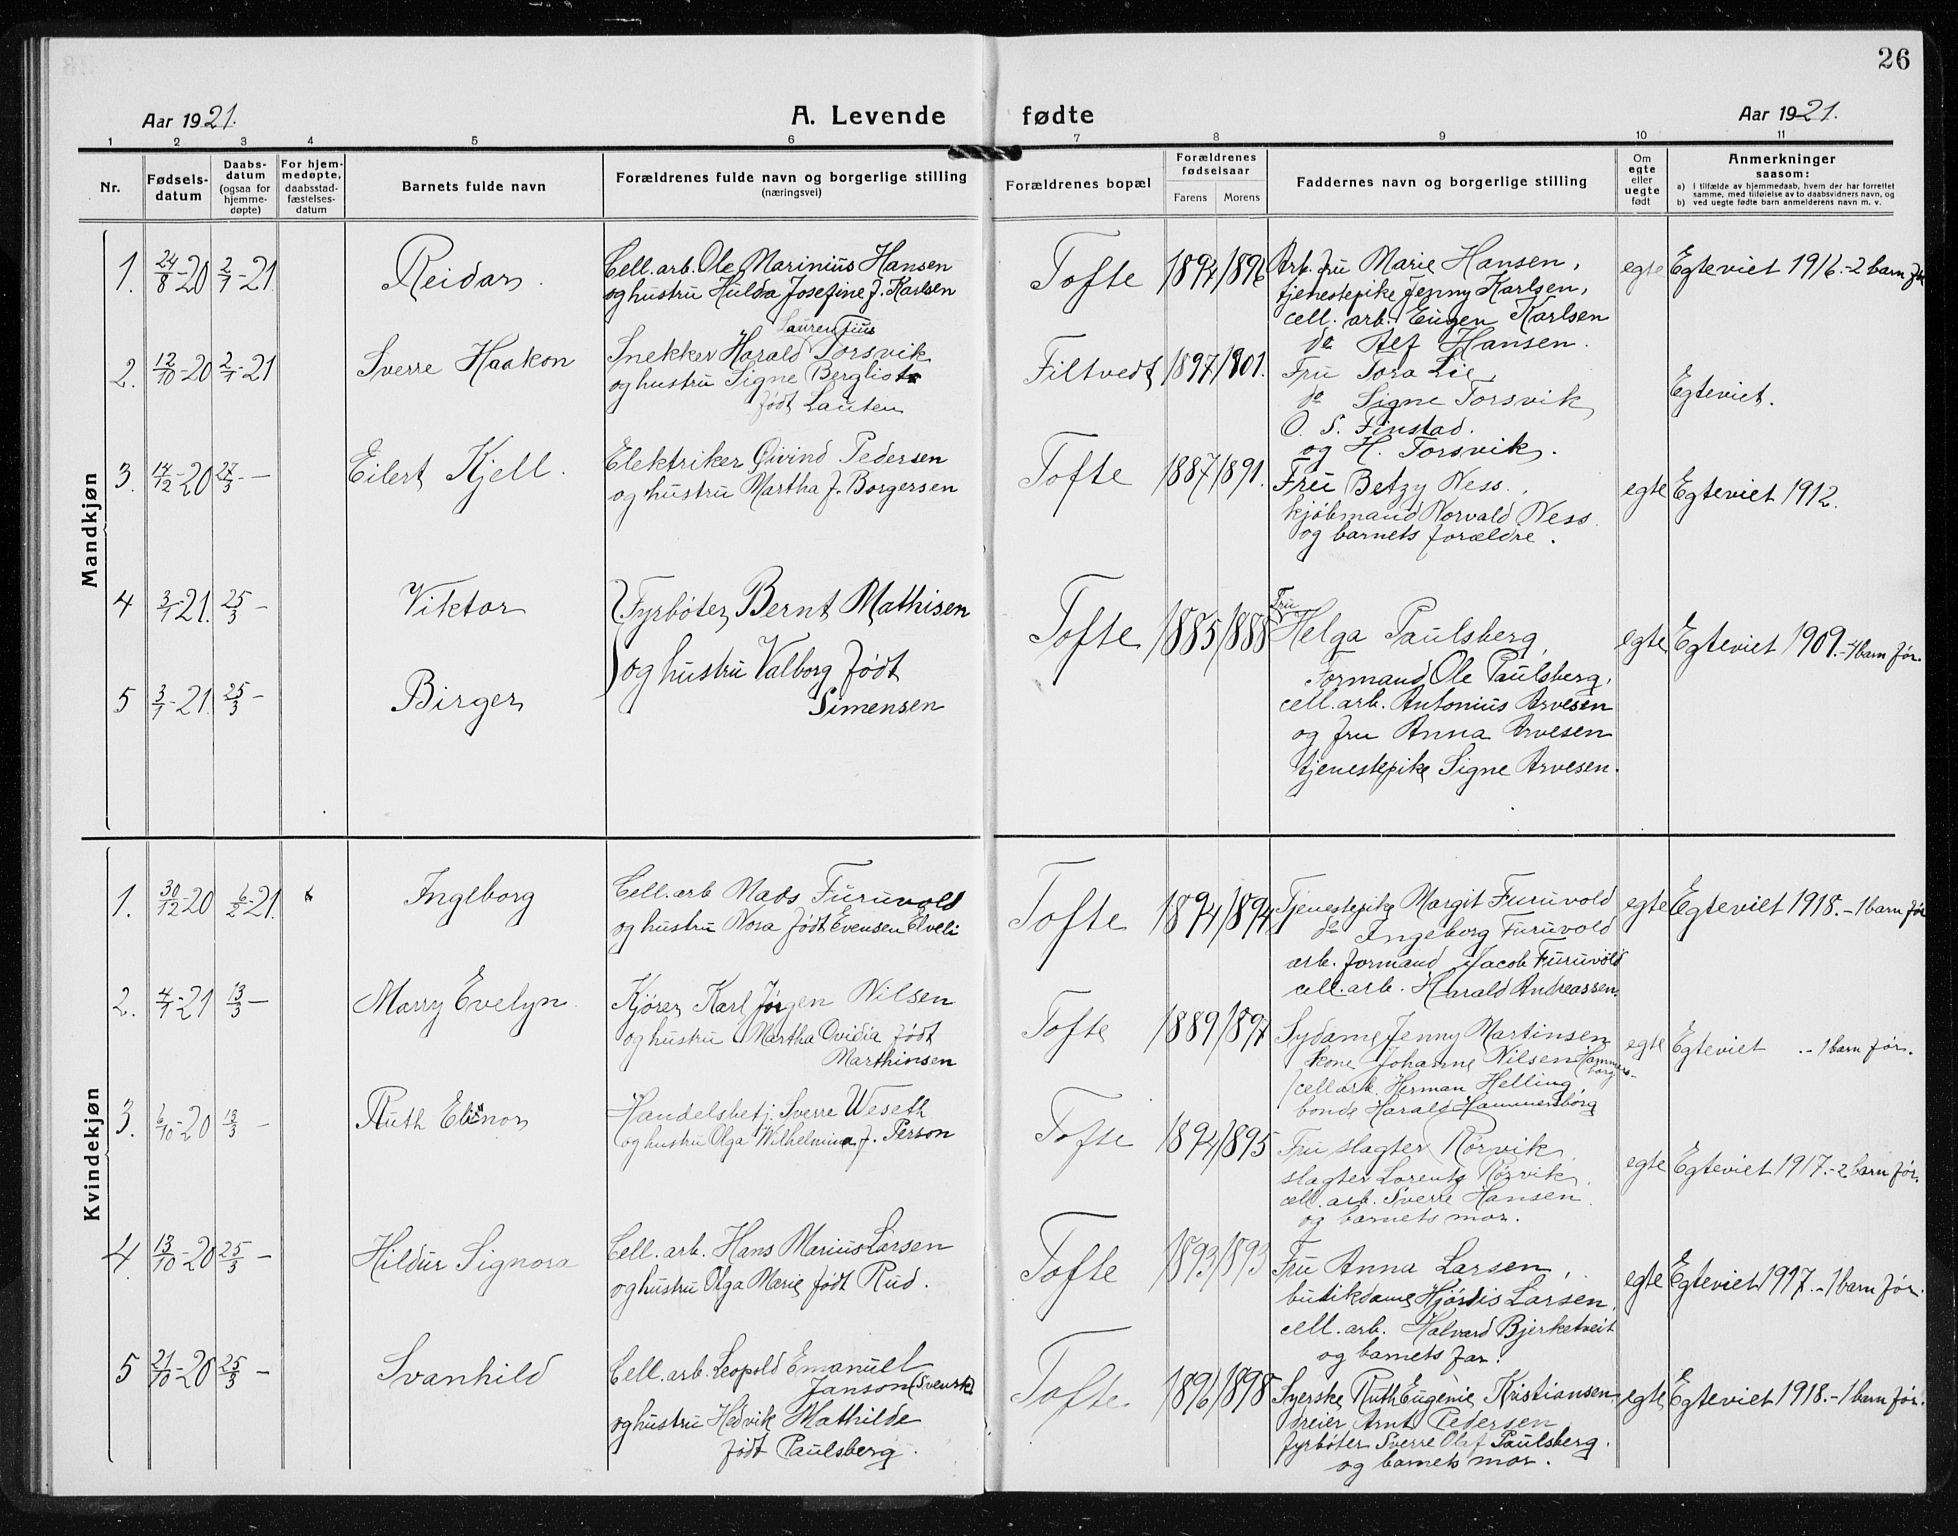 26
Aar 1921. A. Levende fødte Aar 1921.
1 2 3 4 5 6 7 8 9 10 11
Nr.
Fødsels-
datum
Daabs-
datum
(ogsaa for
hjemme-
døpte)
For hjem-
medøpte,
daabsstad-
fæstelses-
datum
Barnets fulde navn
Forældrenes fulde navn og borgerlige stilling
(næringsvei)
Forældrenes bopæl
Forældrenes
fødselsaar
Farens Morens
Faddernes navn og borgerlige stilling
Om
egte
eller
uegte
født
Anmerkninger
saasom:
a) I tilfælde av hjemmedaab, hvem der har forrettet
samme, med tilføielse av to daabsvidners navn, og
b) ved uegte fødte barn anmelderens navn m. v.
Mandkjøn
1. 24/8-20 2/1-21 Reidar
Cell. arb. Ole Marinius Hansen
og hustru Hulda Josefine f. Karlsen
Tofte 1894 1896
Arb. fru Marie Hansen,
tjenestepike Jenny Karlsen,
cell. arb. Eugen Karlsen
do Alf Hansen.
egte Egteviet 1916.-2 barn før
2. 12/10-20 2/1-21 Sverre Haakon
Laurentius
Snekker Harald Torsvik
og hustru Signe Bergliot
født Lauten
Filtvedt 1897 1901.
Fru Tora Lie,
do Signe Torsvik
O. S. Finstad.
og H. Torsvik.
Egteviet.
3. 14/12-20 27/3 - Eilert Kjell.
Elektriker Øivind Pedersen
og hustru Martha f. Borgersen
Tofte 1887 1891.
Fru Betzy Ness,
kjøbmand Norvald Ness
og barnets forældre.
egte Egteviet 1912.
4 3/1-21. 25/3 - Viktor
Fyrbøter Bernt Mathisen
og hustru Valborg født
Simensen
5 3/1-21. 25/3 - Birger
Tofte 1885 1888
Fru
Helga Paulsberg,
Formand Ole Paulsberg,
cell. arb. Antonius Arvesen
og fru Anna Arvesen
tjenestepike Signe Arvesen.
egte Egteviet 1909.-4 barn før.
Kvindekjøn
1. 30/12-20 6/2-21. Ingeborg
Cell. arb Mads Furuvold
og hustru Nora født Evensen Elveli
Tofte 1894 1894
Tjenestepike Margit Furuvold
do Ingeborg Furuvold
arb. formand Jacob Furuvold
cell. arb. Harald Andreassen.
egte Egteviet 1918.-1 barn før
2. 4/1-21 13/3 - Marry Evelyn
Kjører Karl Jørgen Nilsen
og hustru Martha Ovidia født
Marthinsen
Tofte 1889 1897
Sydame Jenny Martinsen
kone Johanne Nilsen Hammers-
borg
cell arb. Herman Helling,
bonde Harald Hammersborg
egte Egteviet .-1 barn før.
3. 6/10-20 13/3 - Ruth Elinor
Handelsbetj. Sverre Weseth
og hustru Olga Wilhelmina f. Person
Tofte 1894 1895
Fru slagter Rørvik,
slagter Lorentz Rørvik,
cell. arb. Sverre Hansen
og barnets mor.
egte Egteviet 1917.-2 barn før.
4. 13/10-20 25/3 - Hildur Signora
Cell. arb. Hans Marius Larsen
og hustru Olga Marie født Rud.
Tofte 1893 1893
Fru Anna Larsen,
butikdame Hjørdis Larsen,
cell. arb. Halvard Bjerketveit
og barnets far.
egte Egteviet 1917.-1 barn før.
5 21/10-20 25/3 - Svanhild
Cell. arb. Leopold Emanuel
Janson (Svensk)
og hustru Hedvik Mathilde
født Paulsberg.
Tofte 1896 1898
Syerske Ruth Eugenie Kristiansen
dreier Arnt Pedersen
fyrbøter Sverre Olaf Paulsberg.
og barnets mor.
egte Egteviet 1918.-1 barn før.